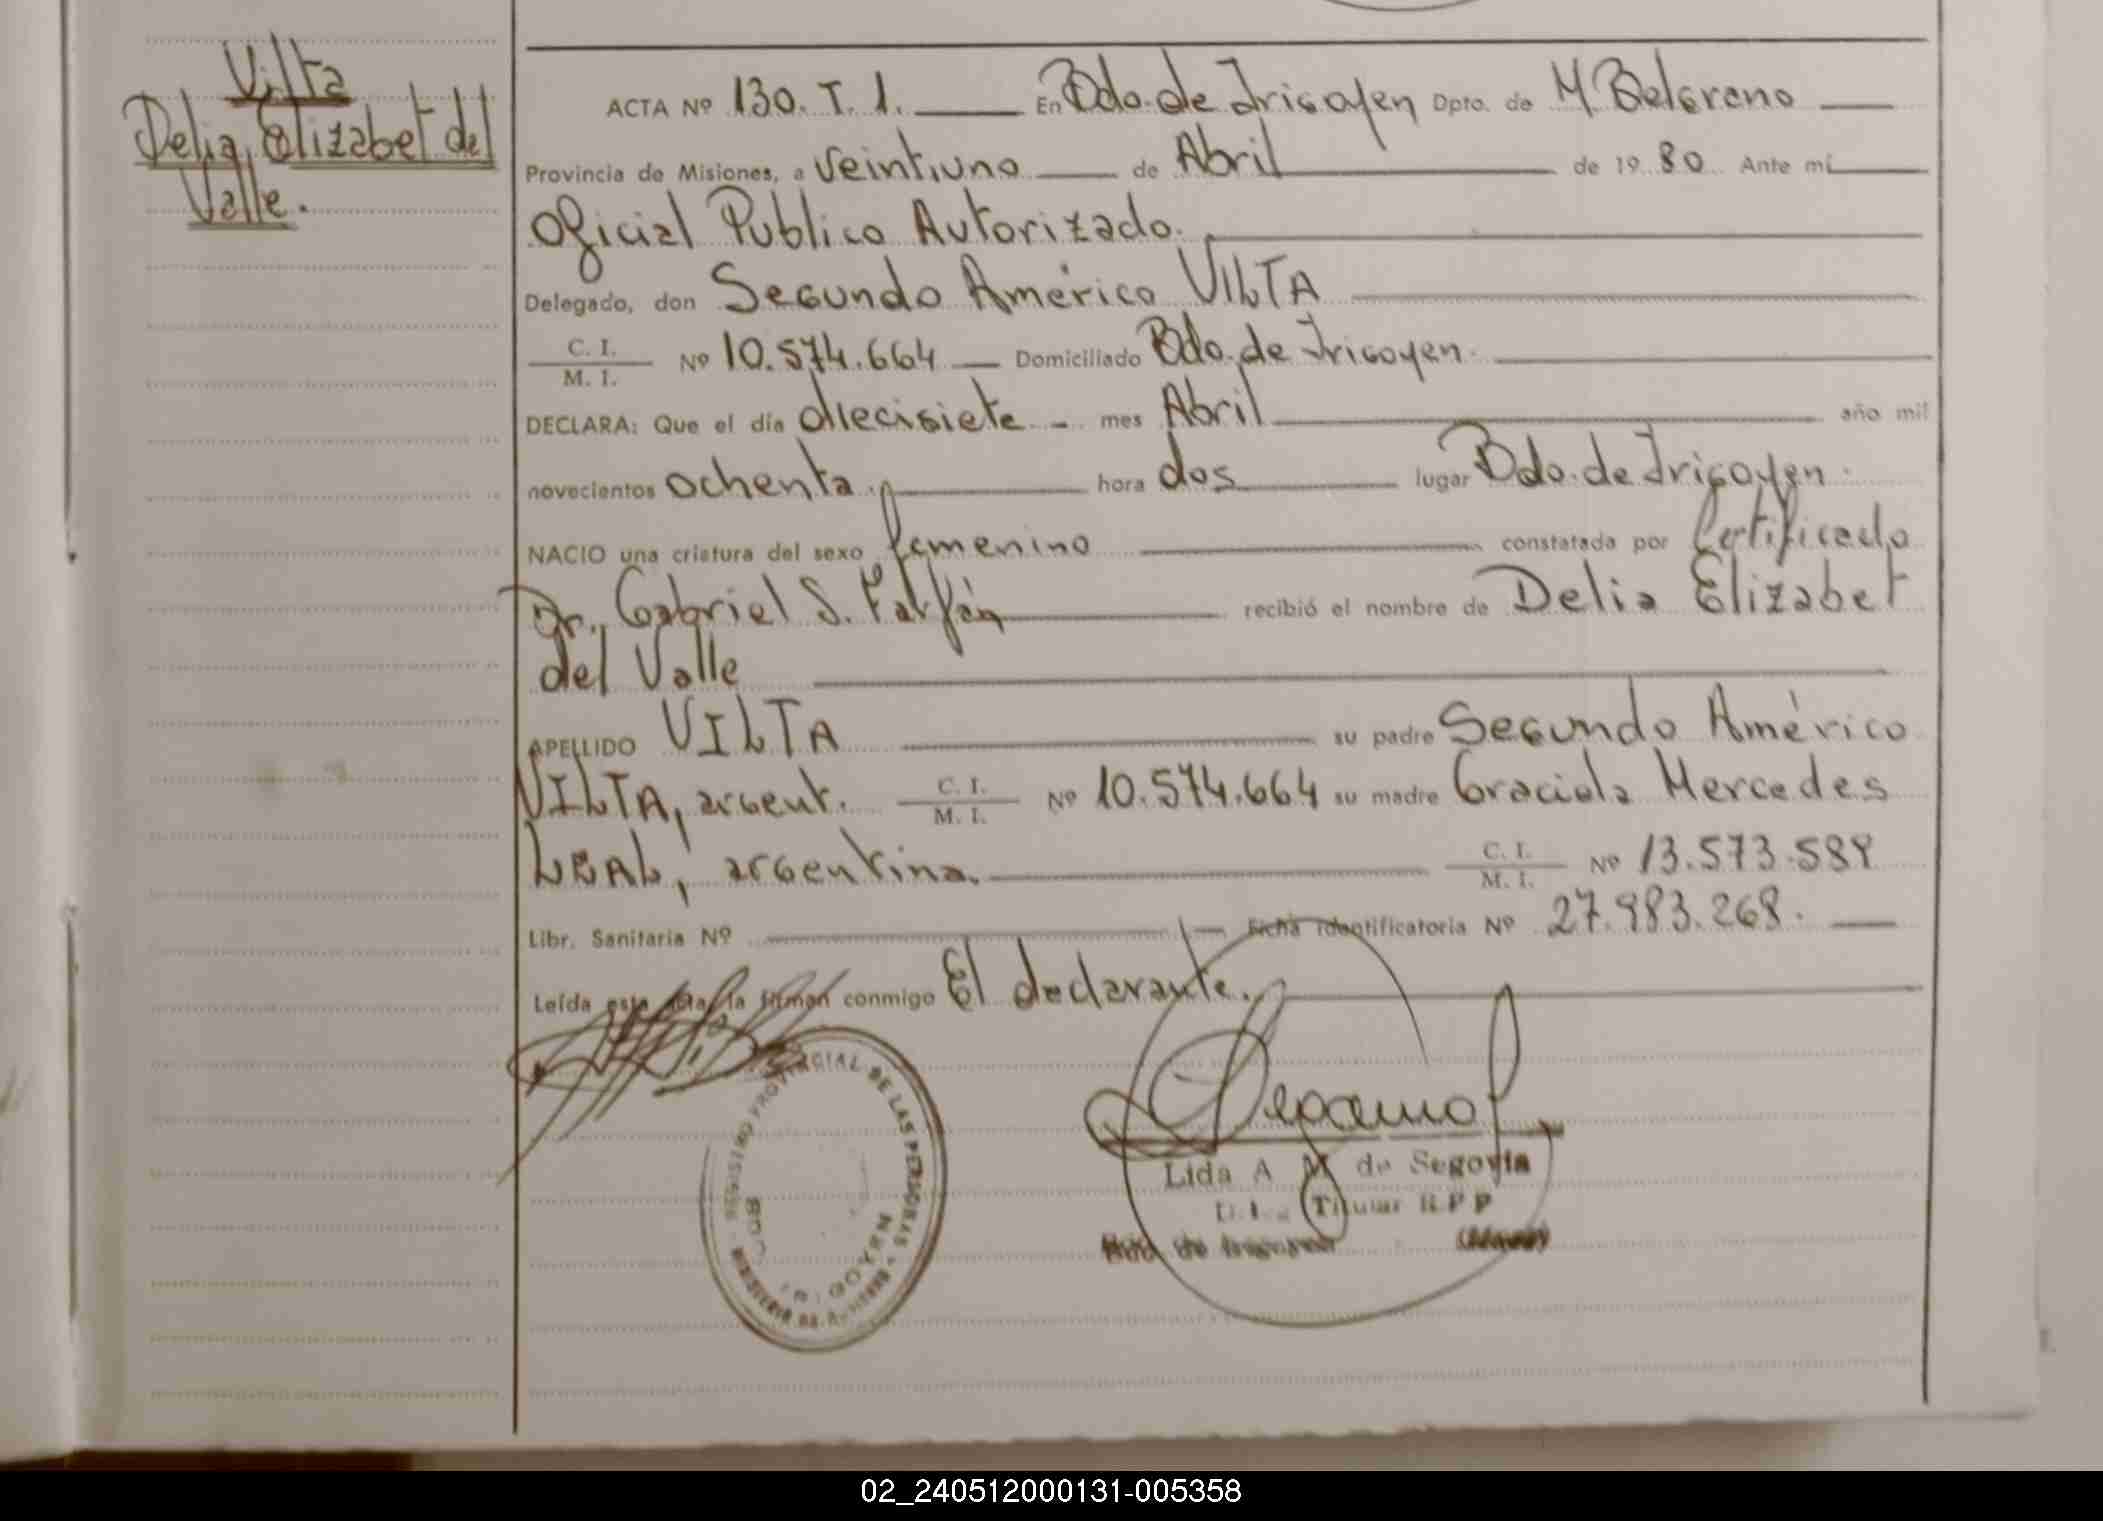 Vilta
Delia Elizabet del
Valle.
ACTA Nº 130. T. 1. En Bdo. de Irigoyen Dpto. de M. Belgrano
Provincia de Misiones, a veintiuno de Abril de 1980 Ante mí
Oficial Publico Autorizado.
Delegado, don Segundo Américo VILTA
C. I.
M. I. Nº 10.574.664 Domiciliado Bdo. de Irigoyen.
DECLARA: Que el día diecisiete - mes Abril año mil
novecientos ochenta. hora dos lugar Bdo. de Irigoyen.
NACIO una criatura del sexo femenino constatada por Certificado
Dr. Gabriel S. Farfán recibió el nombre de Delia Elizabet
del Valle
APELLIDO VILTA su padre Segundo Américo
VILTA, argent. C. I. M. I. Nº 10.574.664 su madre Graciela Mercedes
LEAL, argentina. C. I. M. I. Nº 13.573.589
Libr. Sanitaria Nº Ficha Identificatoria Nº 27.983.268.
Leída esta acta, la firman conmigo El declarante.
REGISTRO PROVINCIAL DE LAS PERSONAS
IRIGOYEN
Lida A M de Segovia
Titular R.P.P
02_240512000131-005358